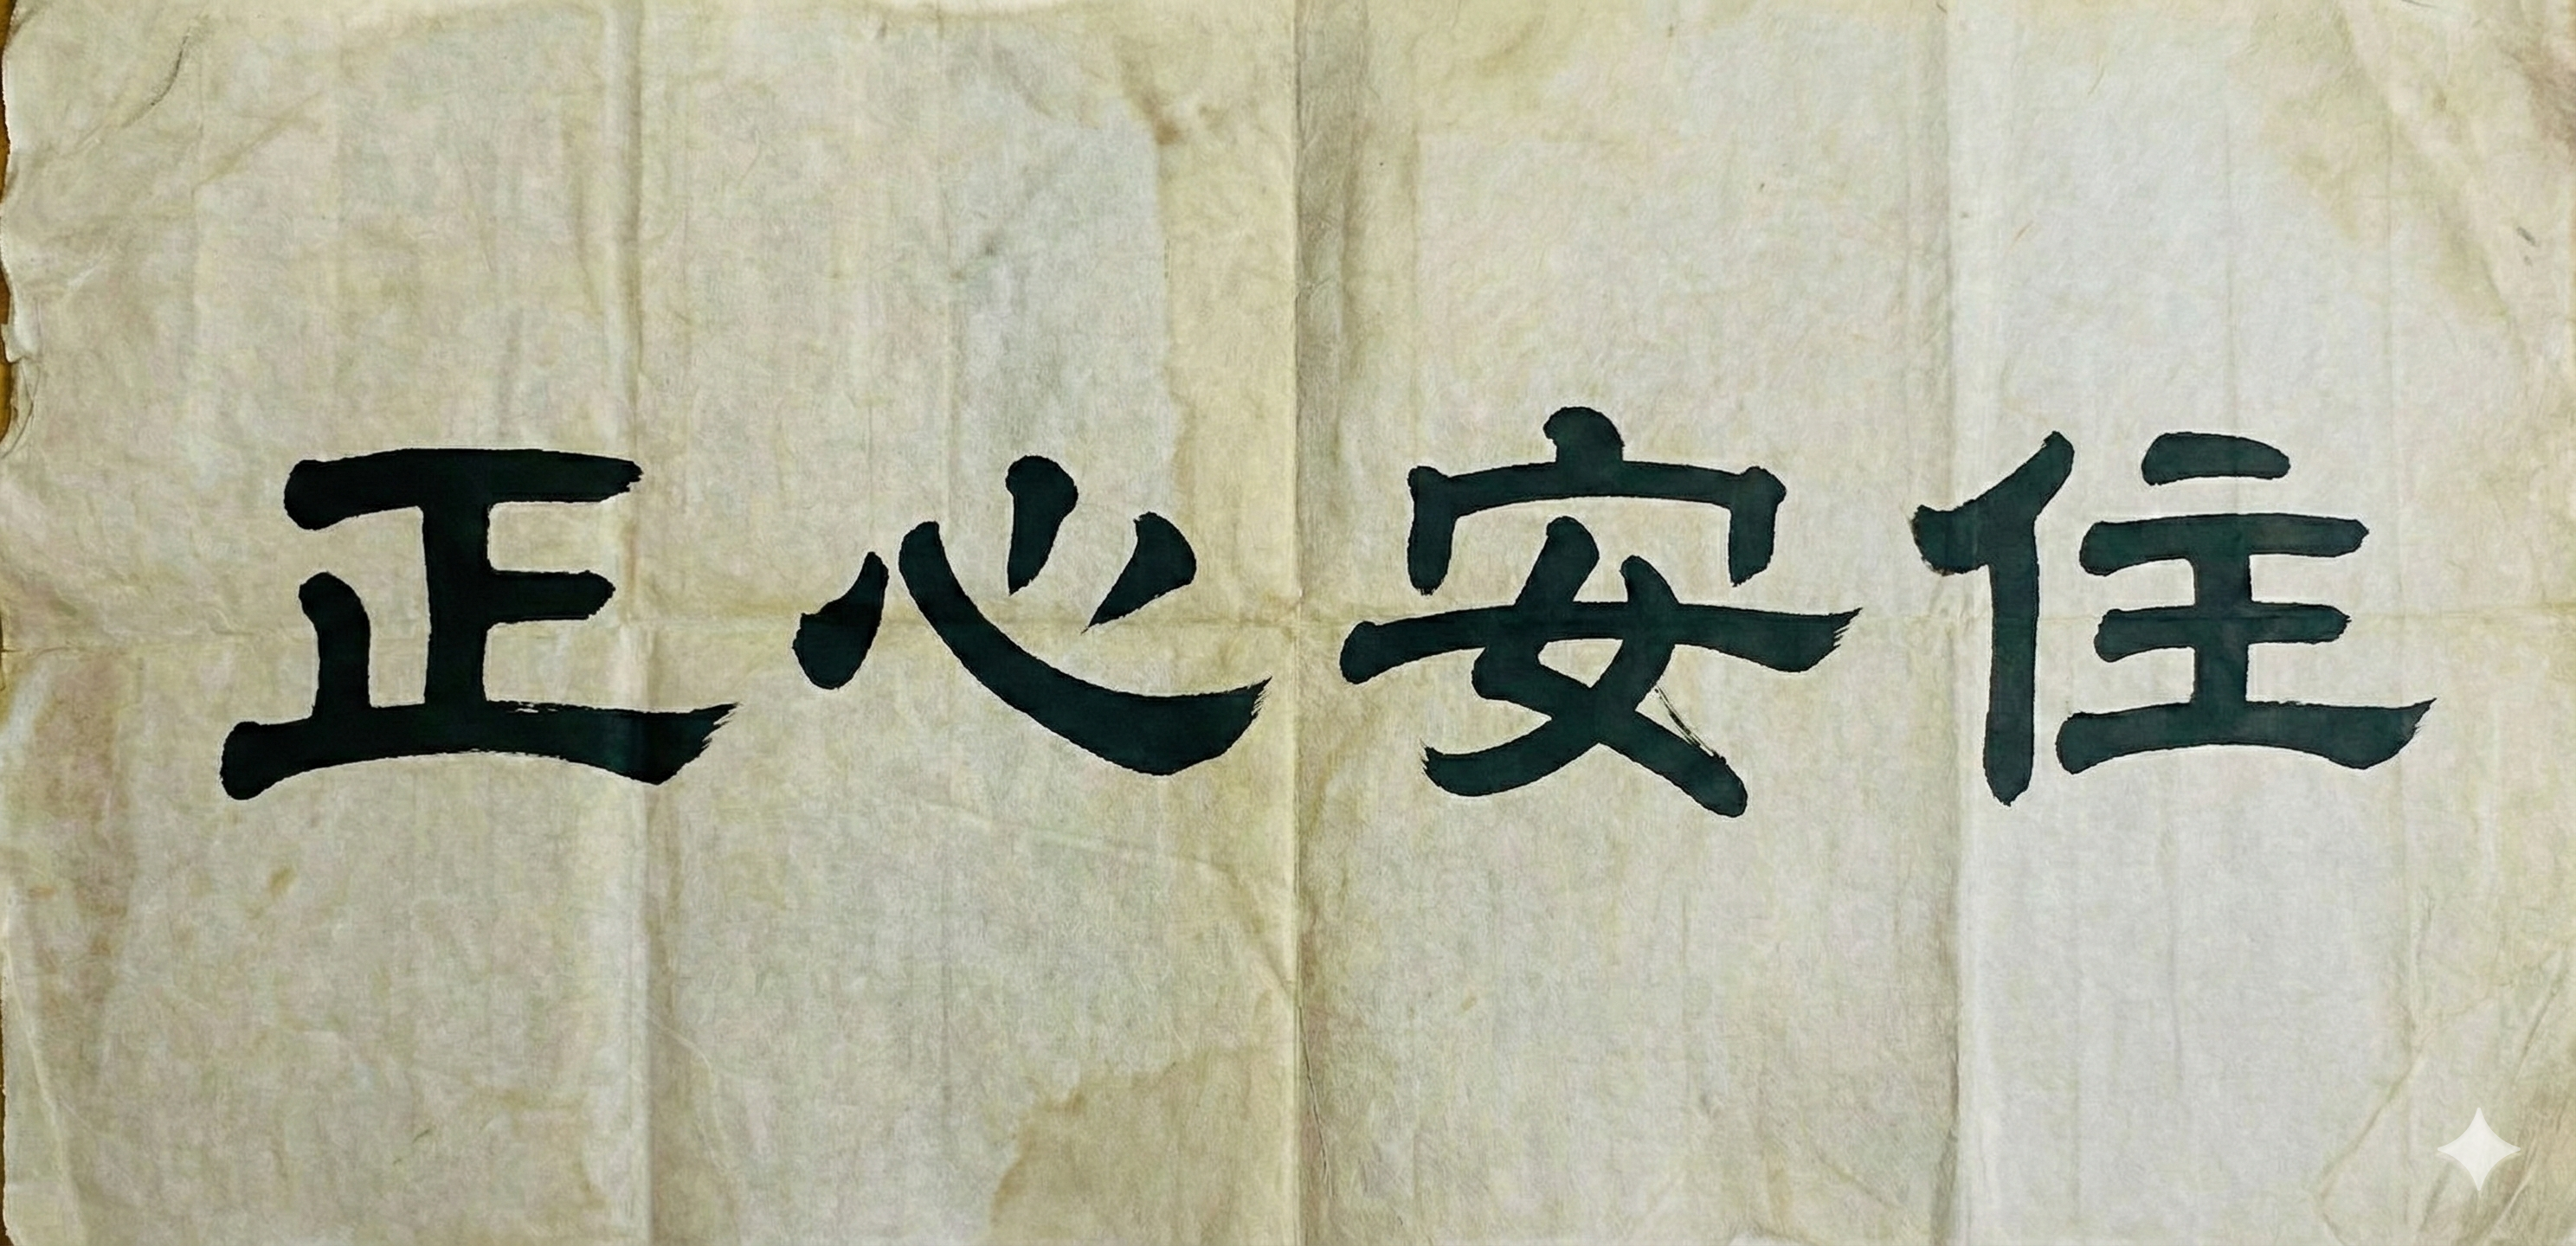 正心安住